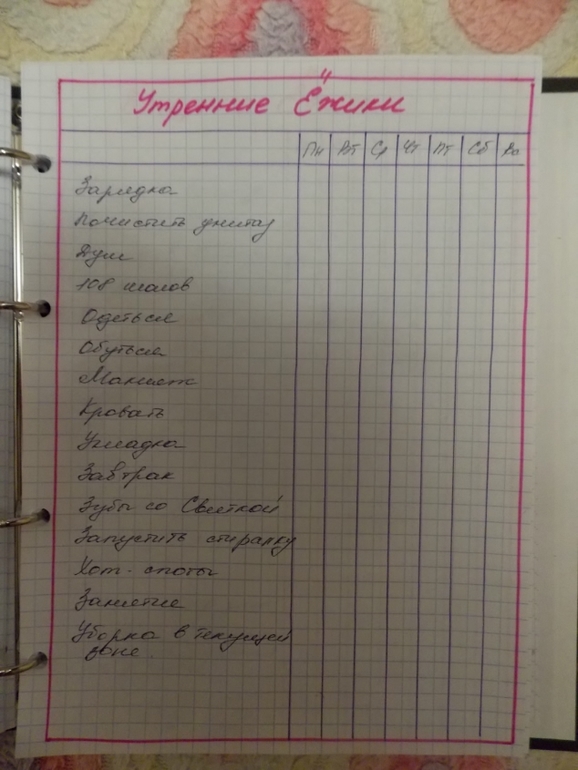 Утренние Ёжики
Пн Вт Ср Чт Пт Сб Вс
Зарядка
Почистить унитаз
Душ
108 шагов
Одеться
Обуться
Макияж
Кровать
Укладка
Завтрак
Зубы со Светкой
Запустить стиралку
Хот-споты
Занятие
Уборка в текущей
зоне.